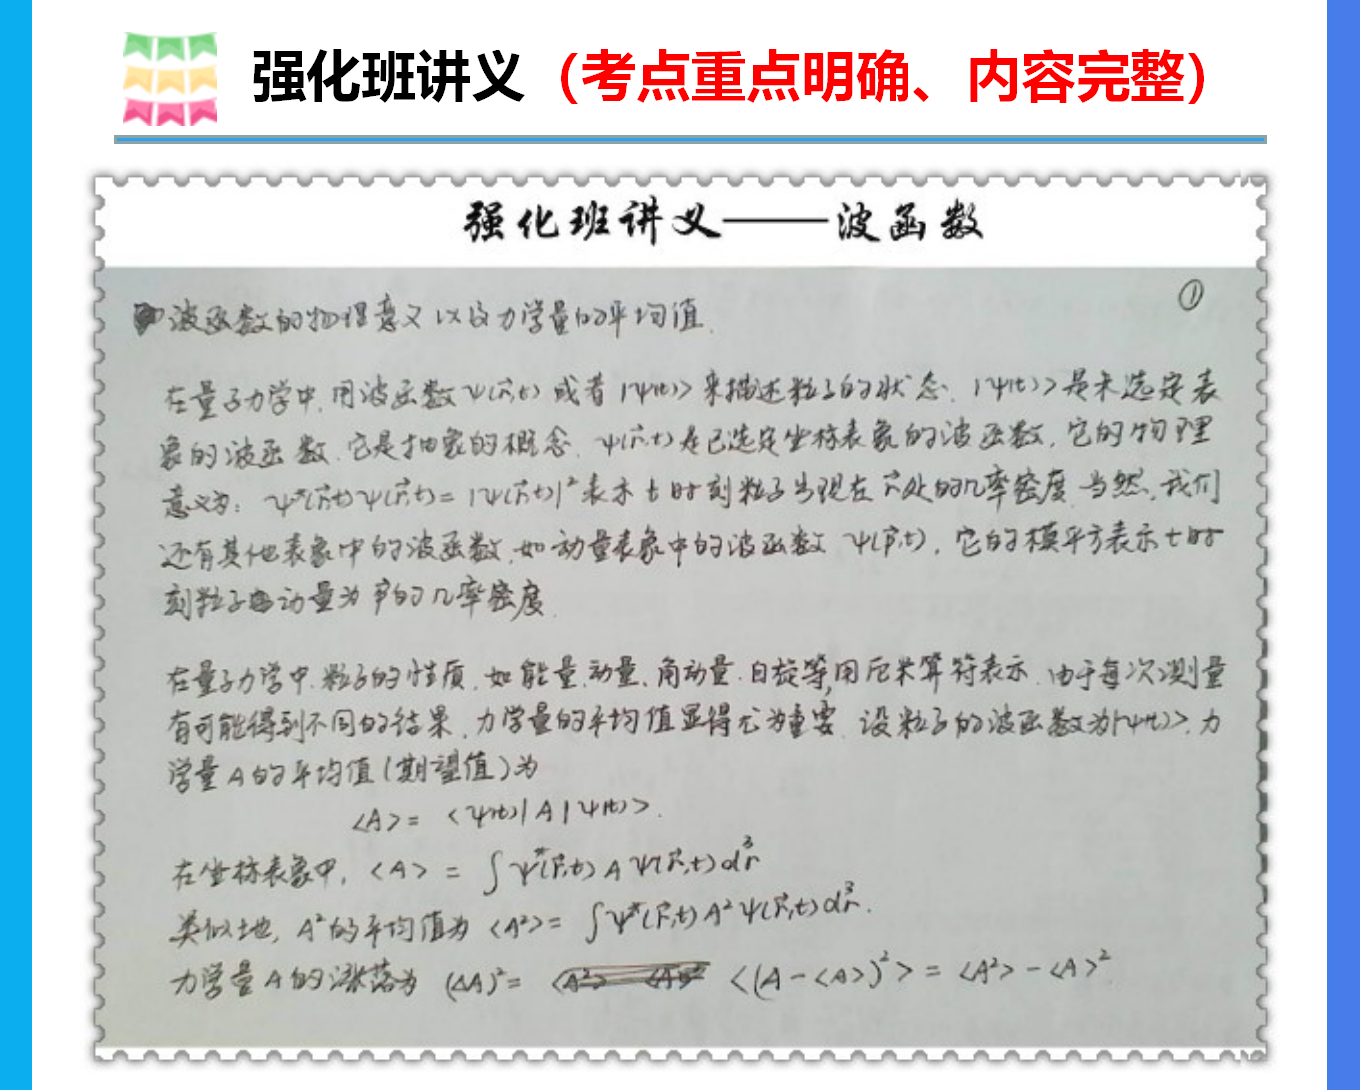 强化班讲义（考点重点明确、内容完整）
强化班讲义——波函数
①
波函数的物理意义以及力学量的平均值.
在量子力学中,用波函数ψ(r⃗,t)或者|ψ(t)>来描述粒子的状态. |ψ(t)>是未选定表
象的波函数,它是抽象的概念. ψ(r⃗,t)是已选定坐标表象的波函数,它的物理
意义为: ψ*(r⃗,t)ψ(r⃗,t)=|ψ(r⃗,t)|²表示t时刻粒子出现在r⃗处的几率密度.当然,我们
还有其他表象中的波函数,如动量表象中的波函数ψ(p⃗,t),它的模平方表示t时
刻粒子动量为p⃗的几率密度.
在量子力学中,粒子的性质,如能量,动量,角动量,自旋等,用厄米算符表示.由于每次测量
有可能得到不同的结果,力学量的平均值显得尤为重要.设粒子的波函数为|ψ(t)>,力
学量A的平均值(期望值)为
<A>= <ψ(t)|A|ψ(t)>.
在坐标表象中, <A> = ∫ψ*(r⃗,t) A ψ(r⃗,t)d³r
类似地, A²的平均值为 <A²>= ∫ψ*(r⃗,t)A²ψ(r⃗,t)d³r.
力学量A的涨落为 (ΔA)²= <(A-<A>)²> = <A²>-<A>²